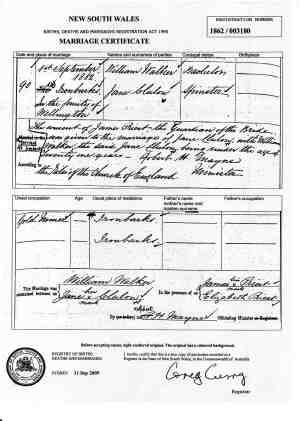 NEW SOUTH WALES
REGISTRATION NUMBER
BIRTHS, DEATHS AND MARRIAGES REGISTRATION ACT 1995
1862 / 003180
MARRIAGE CERTIFICATE
Date and place of marriage
Names and surnames of parties
Conjugal status
Birthplace
1st September
1862
William Walker
Bachelor
90
Ironbarks
Jane Clubow
Spinster
in the County of
Wellington
The consent of James Priest the Guardian of the Bride
was given to the marriage of Jane Clubow with William
Walker, the said Jane Clubow being under the age of
twenty one years - Robert H. Mayne
According to
the Rites of the Church of England
Minister
Usual occupation
Age
Usual place of residence
Father's name
mother's name and
maiden surname
Father's occupation
Gold Miner
Ironbarks
Ironbarks
This Marriage was
contracted between us
William Walker
Jane x Clubow
her
mark
In the presence of us
James x Priest
his
mark
Elizabeth Priest
By
R H Mayne
Officiating Minister
Before accepting copies, sight unaltered original. The original has a coloured background.
REGISTRY OF BIRTHS
DEATHS AND MARRIAGES
I hereby certify that this is a true copy of particulars recorded in a
Register in the State of New South Wales, in the Commonwealth of Australia
SYDNEY
Greg Curry
Registrar